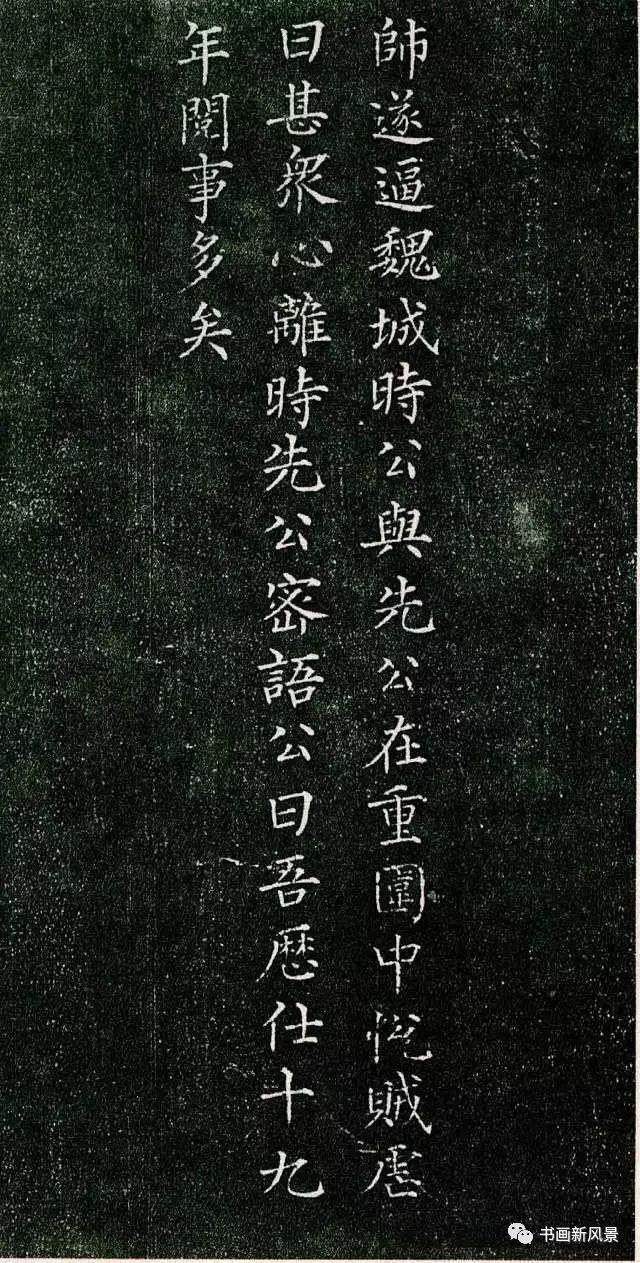 師遂逼魏城時公與先公在重圍中悅賊虐
曰甚衆心離時先公密語公曰吾歷仕十九
年閱事多矣
书画新风景